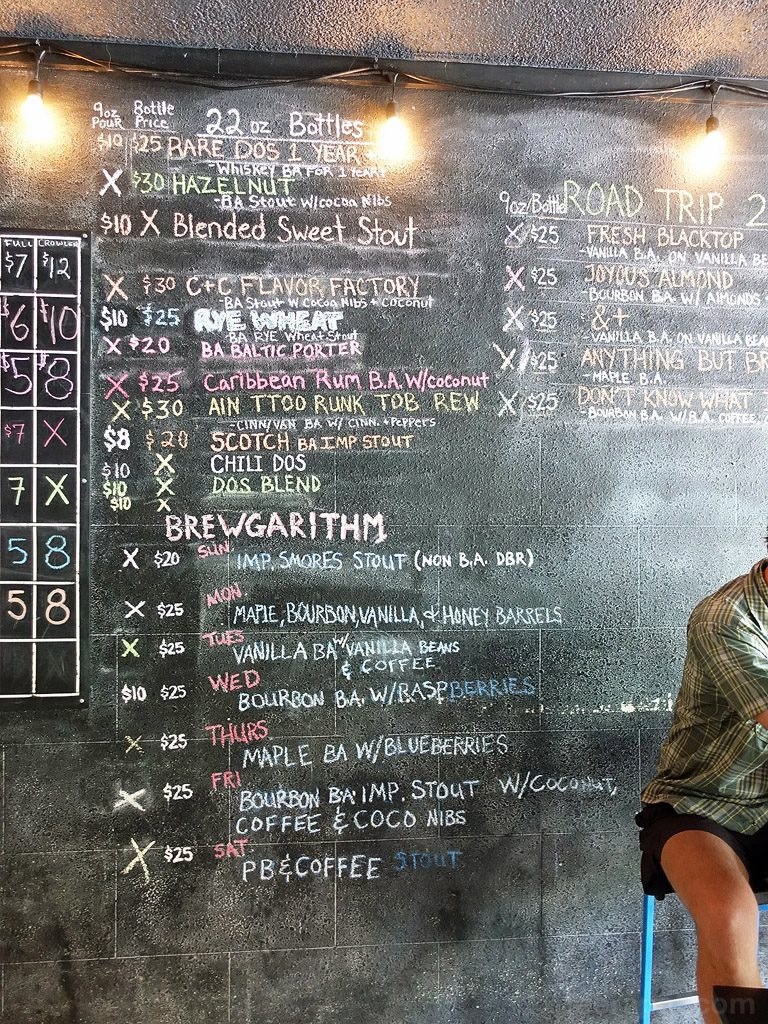 FULL CROWLER
$7 $12
$6 $10
$5 $8
$7 X
7 X
5 8
5 8
9oz Pour Bottle Price 22 oz Bottles
$10 $25 RARE DOS 1 YEAR +
-Whiskey BA FOR 1 Year+
X $30 HAZELNUT
-BA Stout W/cocoa Nibs
$10 X Blended Sweet Stout
X $30 C+C FLAVOR FACTORY
-BA Stout W Cocoa Nibs + Coconut
$10 $25 RYE WHEAT
BA RYE Wheat Stout
X $20 BA BALTIC PORTER
X $25 Caribbean Rum B.A. W/coconut
X $30 AIN TTOO RUNK TOB REW
-CINN/VAN BA W/ CINN. +Peppers
$8 $20 SCOTCH BA IMP STOUT
$10 X CHILI DOS
$10 X DOS BLEND
$10 X
BREWGARITHM
X $20 SUN. IMP. SMORES STOUT (NON B.A. DBR)
X $25 MON. MAPLE, BOURBON, VANILLA, & HONEY BARRELS
X $25 TUES VANILLA BA W/ VANILLA BEANS
& COFFEE
$10 $25 WED BOURBON B.A. W/RASPBERRIES
X $25 THURS MAPLE BA W/BLUEBERRIES
X $25 FRI BOURBON B.A. IMP. STOUT W/COCONUT,
COFFEE & COCO NIBS
X $25 SAT. PB & COFFEE STOUT
9oz/Bottle ROAD TRIP 2
X/$25 FRESH BLACKTOP
-VANILLA B.A. ON VANILLA BE
X $25 JOYOUS ALMOND
-BOURBON B.A. W/ ALMONDS
X $25 &+
-VANILLA B.A. ON VANILLA
X/$25 ANYTHING BUT BR
-MAPLE B.A.
X/$25 DON'T KNOW WHAT I
-BOURBON B.A. W/B.A. COFFEE
.com